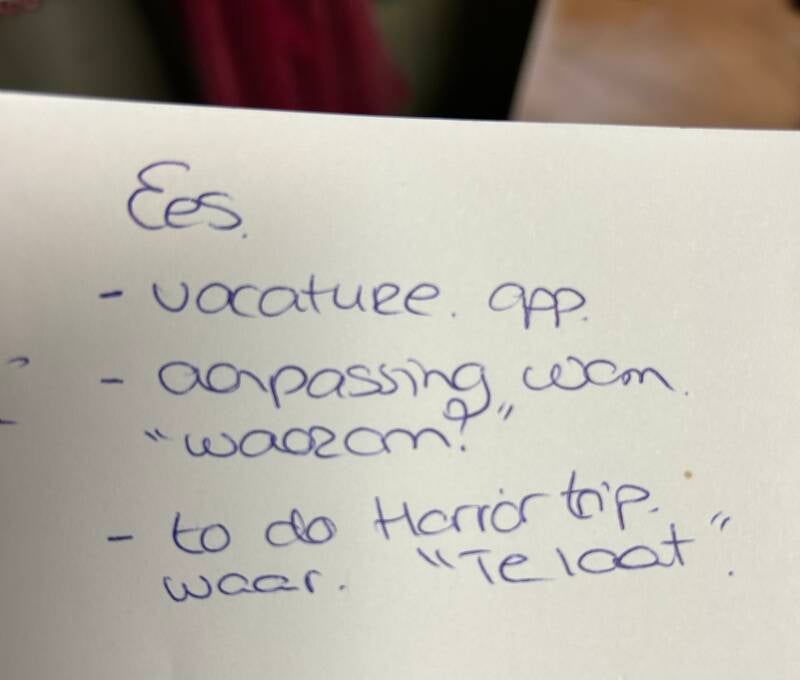 Ees.
- vacature. app.
- aanpassing wcm.
"waarom?"
- to do Horror trip.
waar. "Te laat".